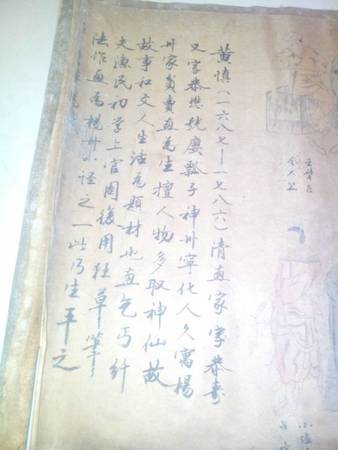 黄慎(一六八七—一七八六)清画家字恭寿
又字恭懋號癭瓢子神州寧化人久寓楊
州家貧賣画为生擅人物多取神仙故
故事和文人生活为題材也画乞丐纤
夫漁民初学上官周後用狂草筆
法作画为楊州八怪之一此乃生平之